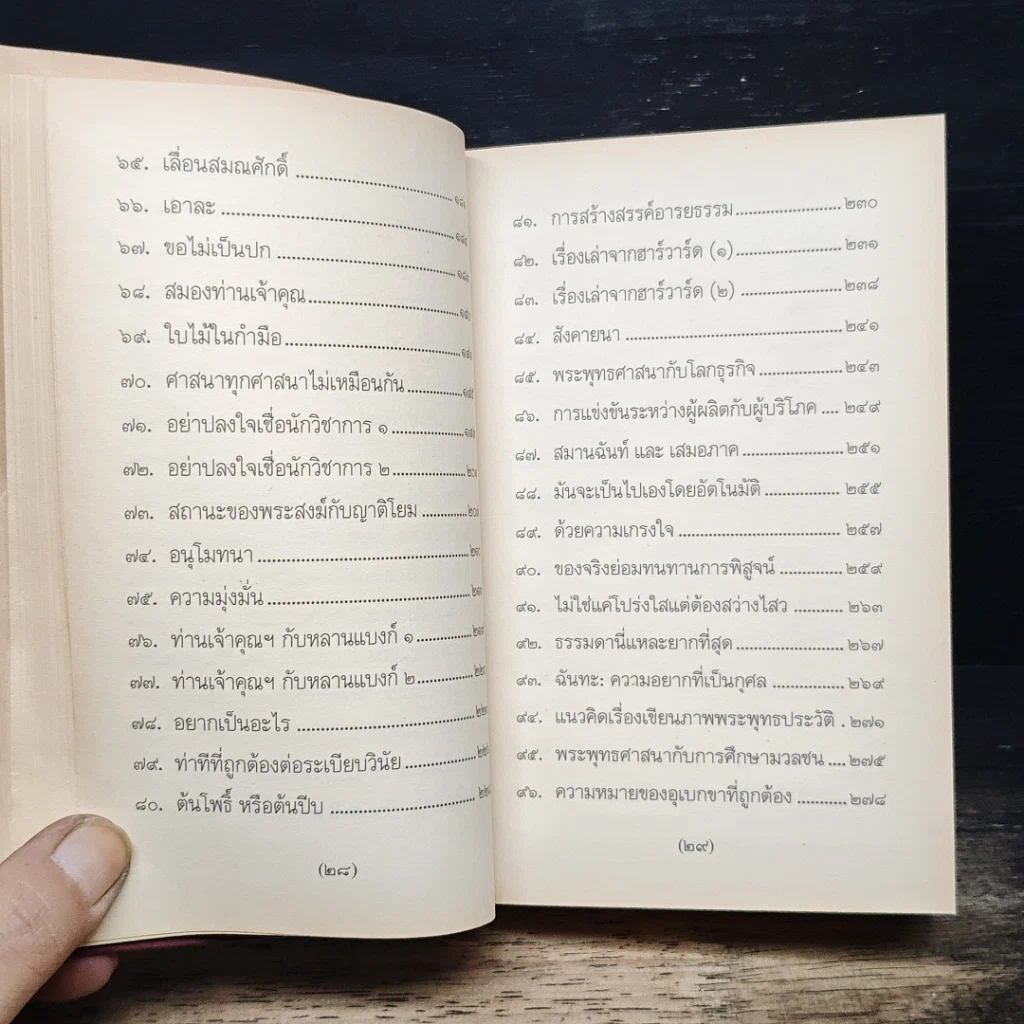 ๖๕. เลื่อนสมณศักดิ์
๖๖. เอาละ
๖๗. ขอไม่เป็นปก
๖๘. สมองท่านเจ้าคุณ
๖๙. ใบไม้ในกำมือ
๗๐. ศาสนาทุกศาสนาไม่เหมือนกัน
๗๑. อย่าปลงใจเชื่อนักวิชาการ ๑
๗๒. อย่าปลงใจเชื่อนักวิชาการ ๒
๗๓. สถานะของพระสงฆ์กับญาติโยม
๗๔. อนุโมทนา
๗๕. ความมุ่งมั่น
๗๖. ท่านเจ้าคุณฯ กับหลานแบงก์ ๑
๗๗. ท่านเจ้าคุณฯ กับหลานแบงก์ ๒
๗๘. อยากเป็นอะไร
๗๙. ท่าทีที่ถูกต้องต่อระเบียบวินัย
๘๐. ต้นโพธิ์ หรือต้นปีบ
(๒๘)
๘๑. การสร้างสรรค์อารยธรรม ๒๓๐
๘๒. เรื่องเล่าจากฮาร์วาร์ด (๑) ๒๓๑
๘๓. เรื่องเล่าจากฮาร์วาร์ด (๒) ๒๓๘
๘๔. สังคายนา ๒๔๑
๘๕. พระพุทธศาสนากับโลกธุรกิจ ๒๔๓
๘๖. การแข่งขันระหว่างผู้ผลิตกับผู้บริโภค .... ๒๔๙
๘๗. สมานฉันท์ และ เสมอภาค ๒๕๑
๘๘. มันจะเป็นไปเองโดยอัตโนมัติ ๒๕๕
๘๙. ด้วยความเกรงใจ ๒๕๗
๙๐. ของจริงย่อมทนทานการพิสูจน์ ๒๕๙
๙๑. ไม่ใช่แค่โปร่งใสแต่ต้องสว่างไสว ๒๖๓
๙๒. ธรรมดานี่แหละยากที่สุด ๒๖๗
๙๓. ฉันทะ: ความอยากที่เป็นกุศล ๒๖๙
๙๔. แนวคิดเรื่องเขียนภาพพระพุทธประวัติ . ๒๗๑
๙๕. พระพุทธศาสนากับการศึกษามวลชน .... ๒๗๕
๙๖. ความหมายของอุเบกขาที่ถูกต้อง ๒๗๘
(๒๙)